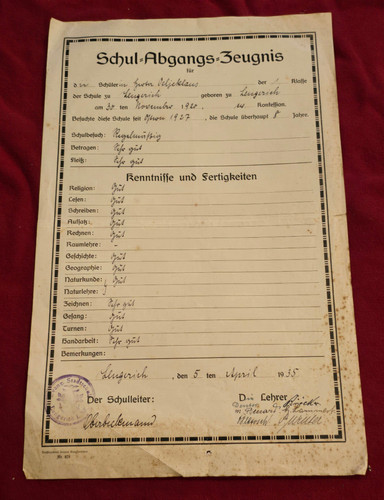 Schul-Abgangs-Zeugnis
für
d er Schüler in Grete der I Klasse
der Schule zu Lengerich geboren zu Lengerich
am 30 ten November 1920, ev. Konfession.
Besuchte diese Schule seit Ostern 1927, die Schule überhaupt 8 Jahre.
Schulbesuch: Regelmäßig
Betragen: Sehr gut
Fleiß: Sehr gut
Kenntnisse und Fertigkeiten
Religion: Gut
Lesen: Gut
Schreiben: Gut
Aufsatz: Gut
Rechnen: Gut
Raumlehre: -
Geschichte: Gut
Geographie: Gut
Naturkunde: Gut
Naturlehre:
Zeichnen: Sehr gut
Gesang: Gut
Turnen: Gut
Handarbeit: Sehr gut
Bemerkungen:
Lengerich, den 5 ten April 1935
Der Schulleiter: Die Lehrer